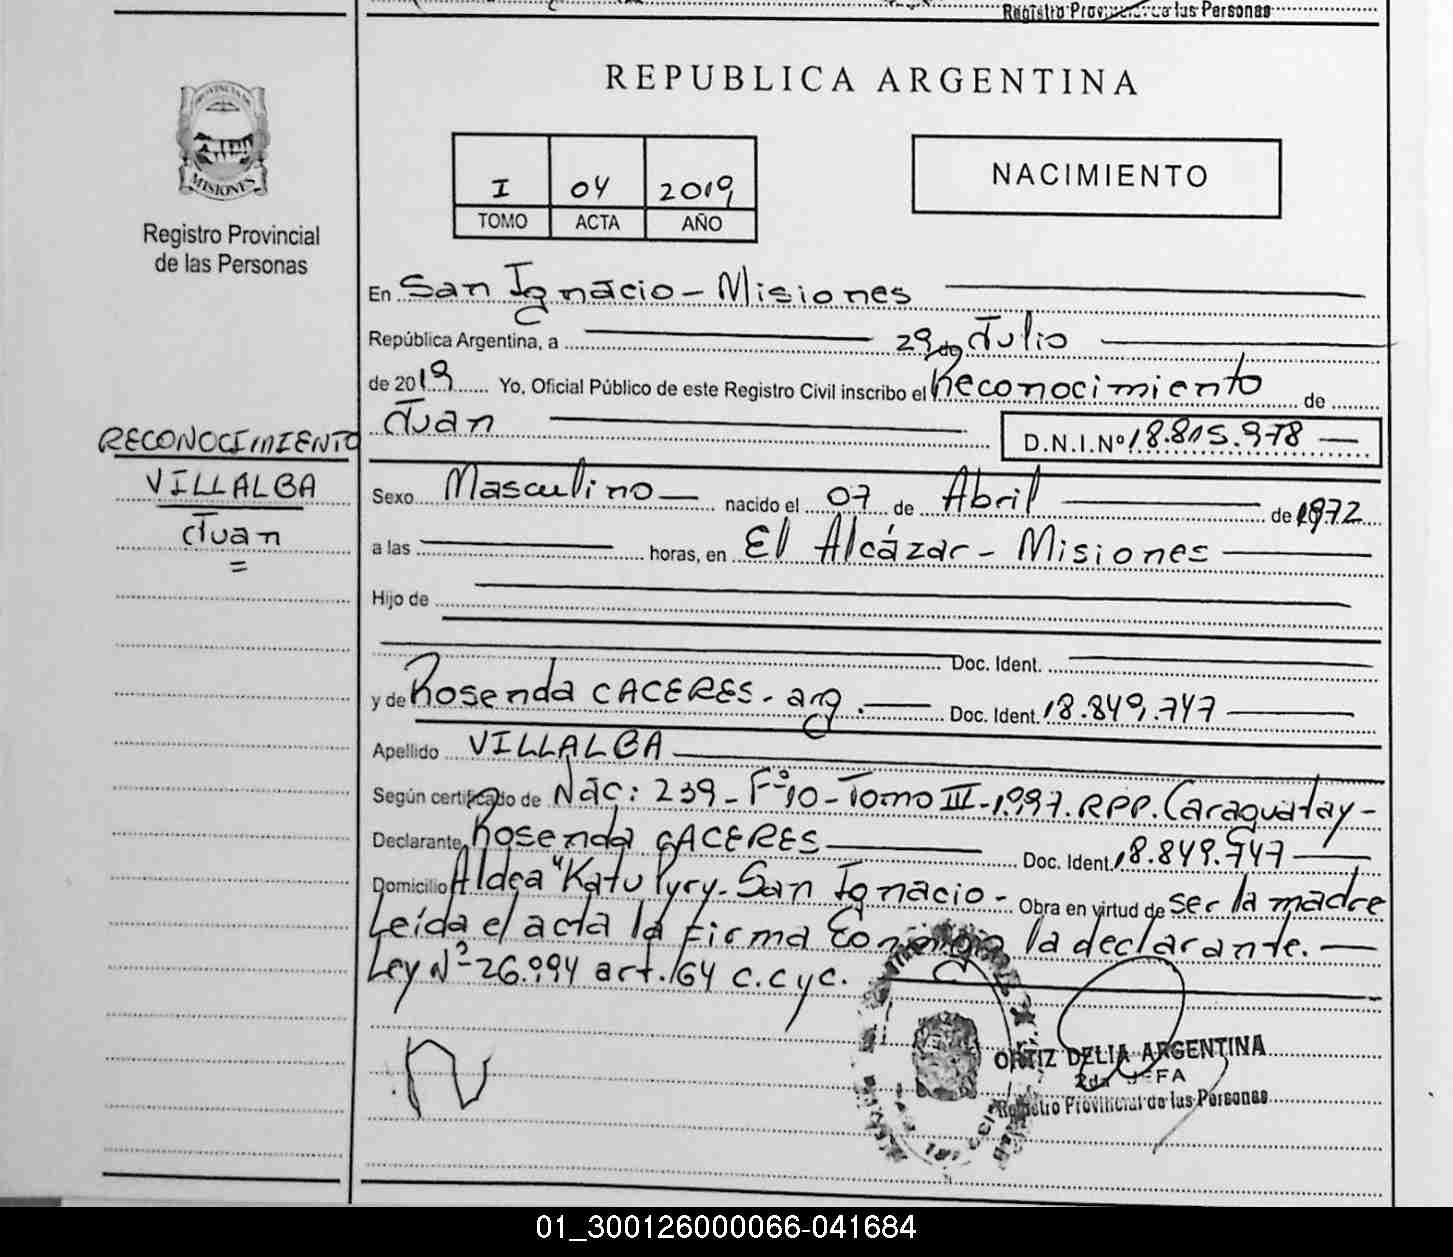 Registro Provincial de las Personas
REPUBLICA ARGENTINA
PROVINCIA DE
MISIONES
Registro Provincial
de las Personas
I 04 2019
TOMO ACTA AÑO
NACIMIENTO
En San Ignacio - Misiones
República Argentina, a 29 de Julio
de 2019 Yo, Oficial Público de este Registro Civil inscribo el Reconocimiento de
Juan D.N.I.Nº 18.815.978
RECONOCIMIENTO
VILLALBA
Juan
=
Sexo Masculino nacido el 07 de Abril de 1972
a las horas, en El Alcázar - Misiones
Hijo de
Doc. Ident.
y de Rosenda CACERES - arg. Doc. Ident. 18.849.747
Apellido VILLALBA
Según certificado de Nac: 239 - Fº 10 - Tomo III - 1.997. RPP. Caraguatay -
Declarante Rosenda CACERES Doc. Ident. 18.849.747
Domicilio Aldea "Katu Pyry - San Ignacio - Obra en virtud de ser la madre
Leída el acta la firma Conmigo la declarante.
Ley Nº 26.994 art. 164 C.C y C.
ORTIZ DELIA ARGENTINA
2da JEFA
Registro Provincial de las Personas
01_300126000066-041684